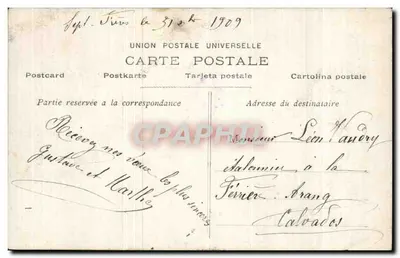 Sept Frères le 31 Xbre 1909
UNION POSTALE UNIVERSELLE
CARTE POSTALE
Postcard Postkarte Tarjeta postale Cartolina postale
Partie reservée a la correspondance
Adresse du destinataire
Recevez nos vœux les plus sincères
Gustave et Marthe
Monsieur Léon Vaudry
à la
Ferrière Harang
Calvados
CPARAMA